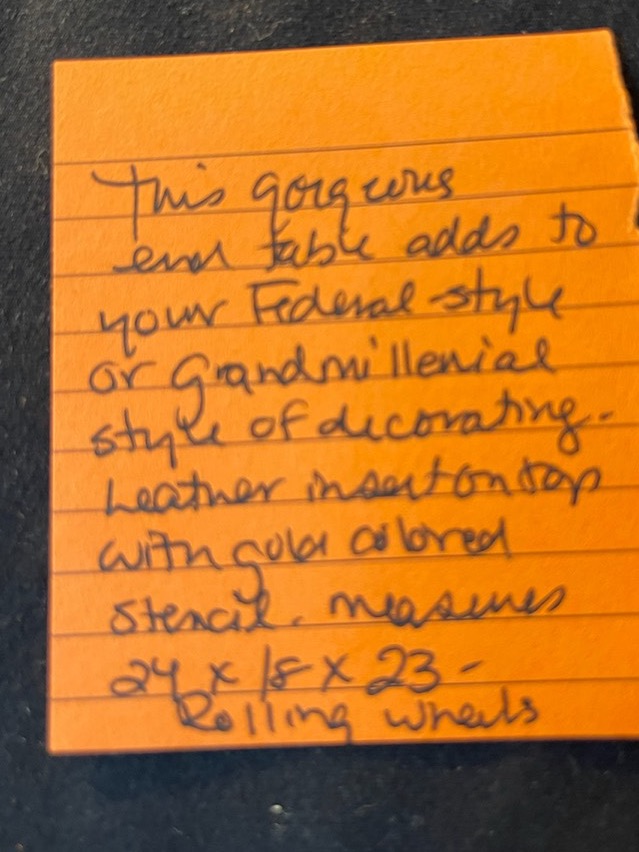 This gorgeous
end table adds to
your Federal-style
or Grandmillenial
style of decorating.
Leather insert on top
with gold colored
stencil. Measures
24 x 18 x 23 -
Rolling wheels